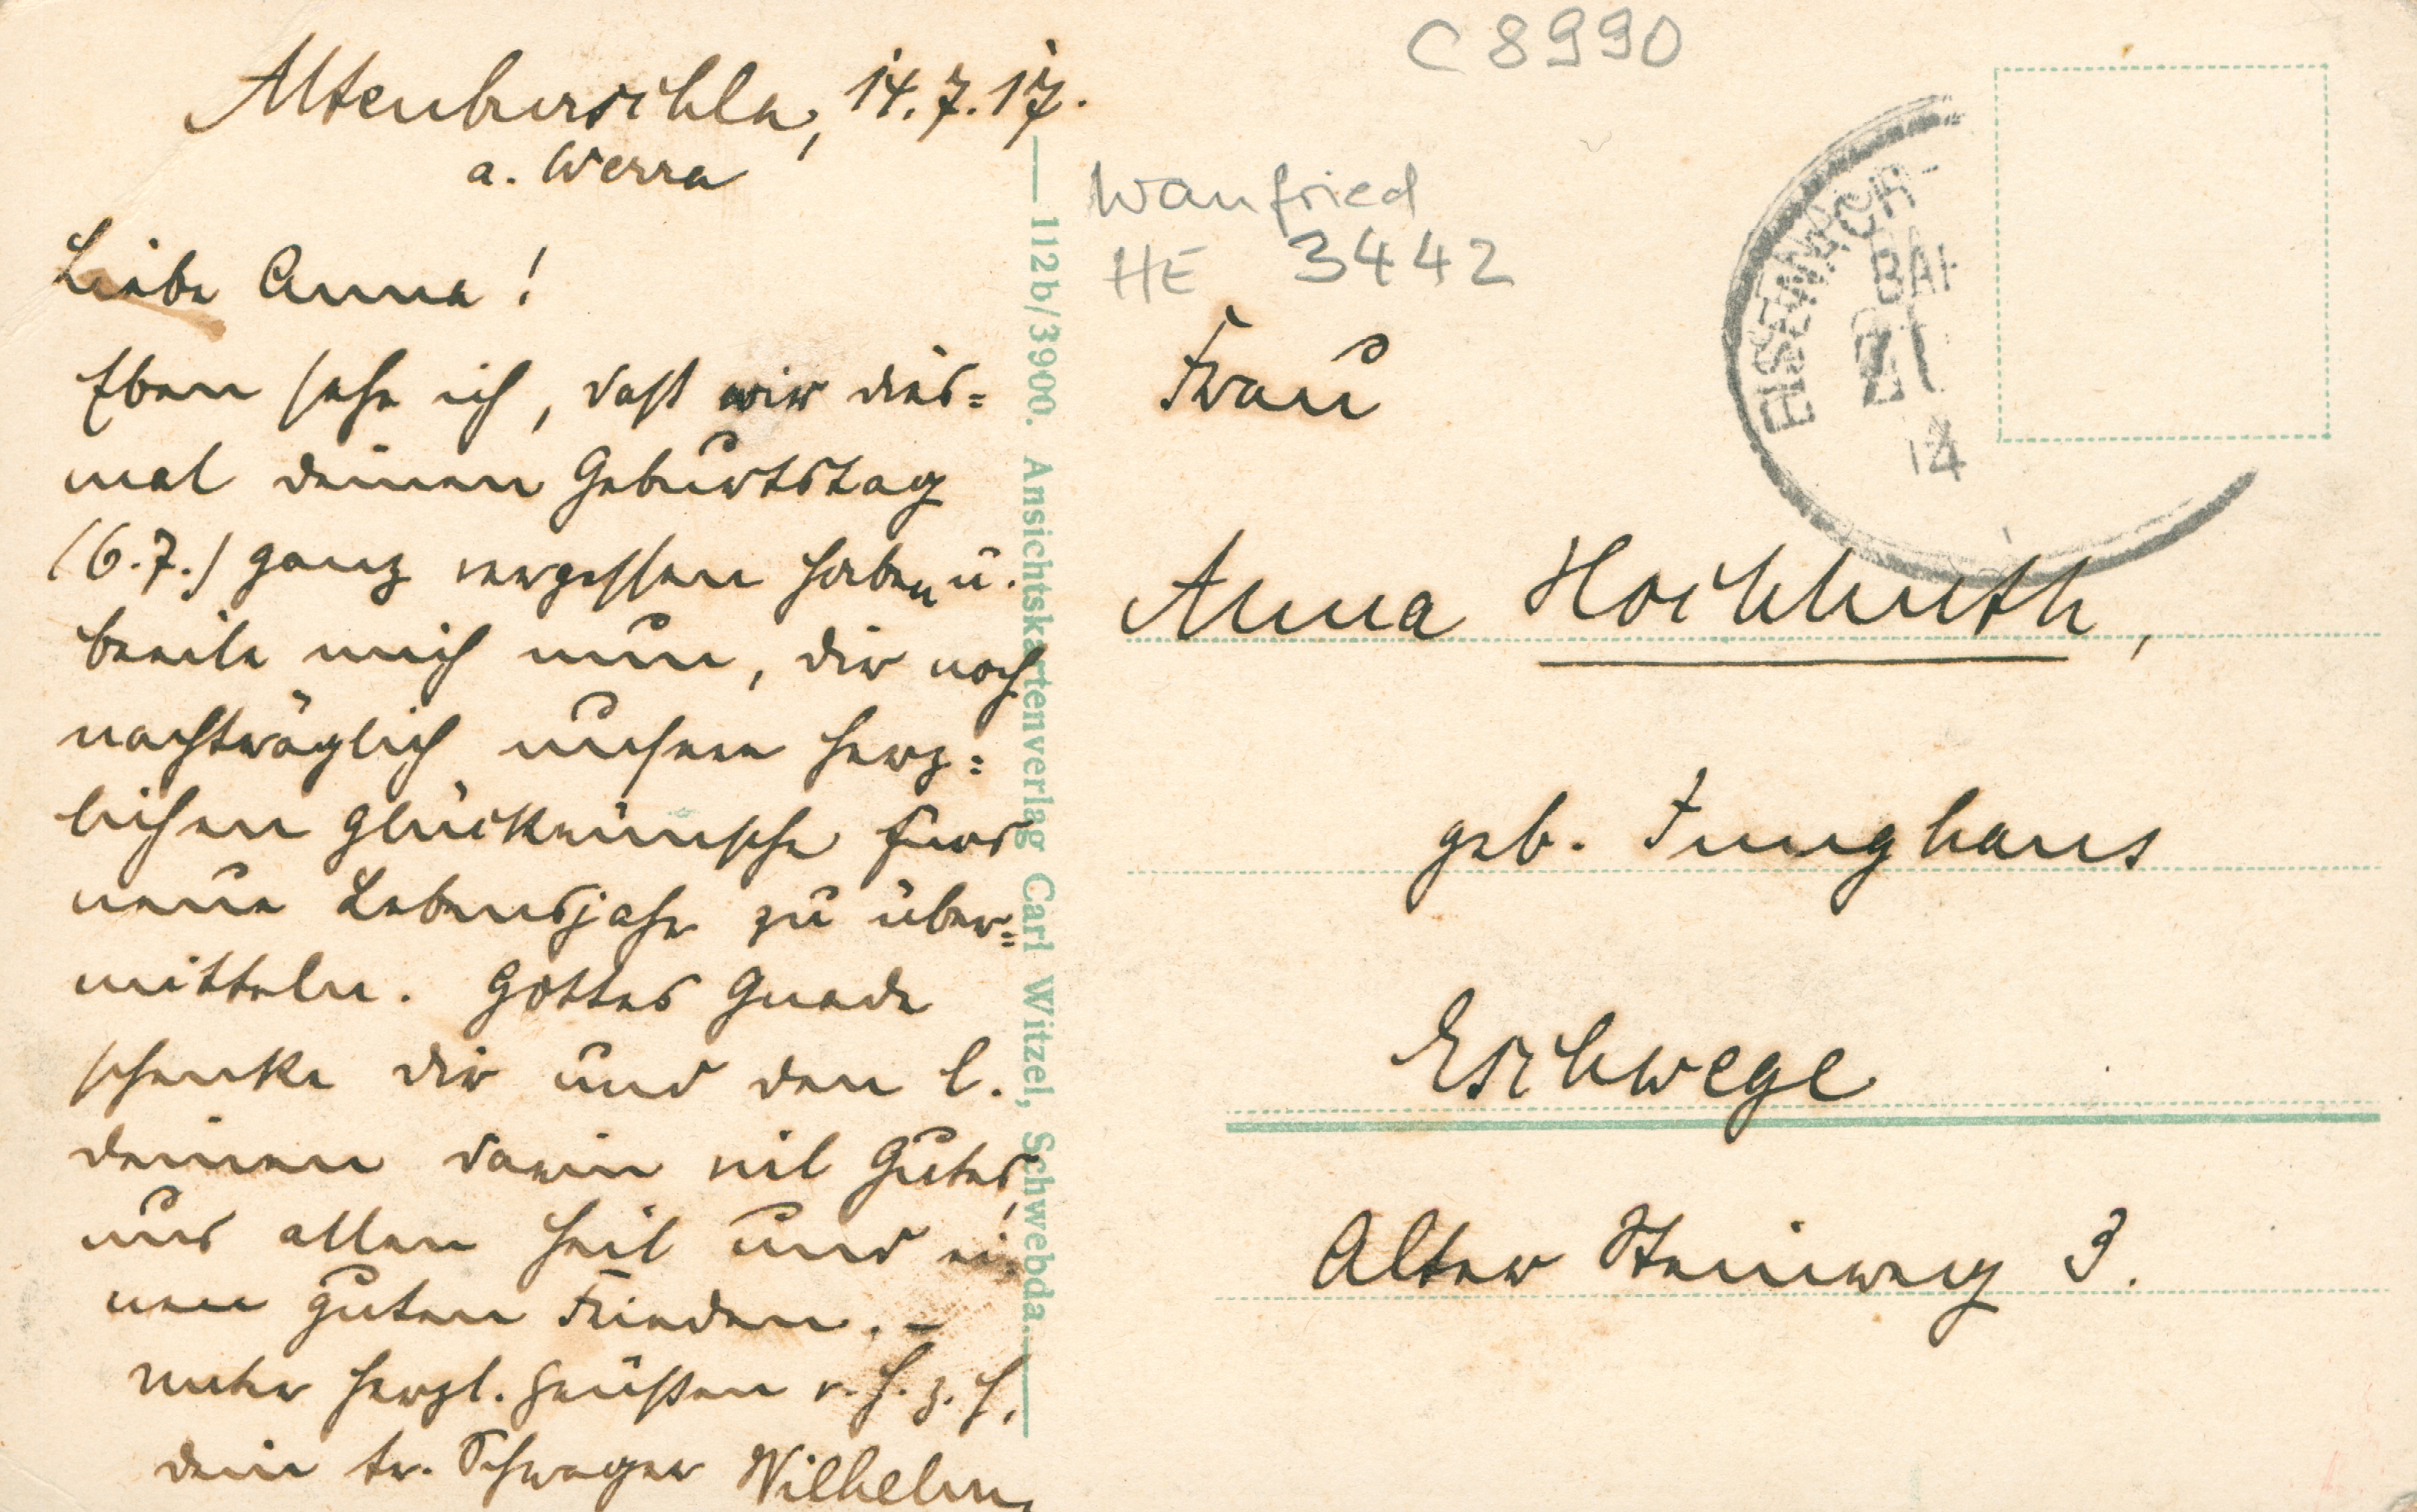 C 8990
Altenburschla, 14.7.17.
a. Werra
Liebe Anna!
Eben sehe ich, daß wir dies=
mal deinen Geburtstag
(6.7.) ganz vergessen haben u.
beeile mich nun, dir noch
nachträglich unsere herz=
lichen Glückwünsche fürs
neue Lebensjahr zu über=
mitteln. Gottes Gnade
schenke dir und den l.
deinen darin viel Gutes,
uns allen Heil und ei=
nen guten Frieden. –
Unter herzl. Grüßen v. H. z. H.
dein tr. Schwager Wilhelm
112b/3900. Ansichtskartenverlag Carl Witzel, Schwebda.
Wanfried
HE 3442
EISENACH-
BAH
ZU
14
Frau
Anna Hochhuth,
geb. Junghans
Eschwege
Alter Steinweg 3.